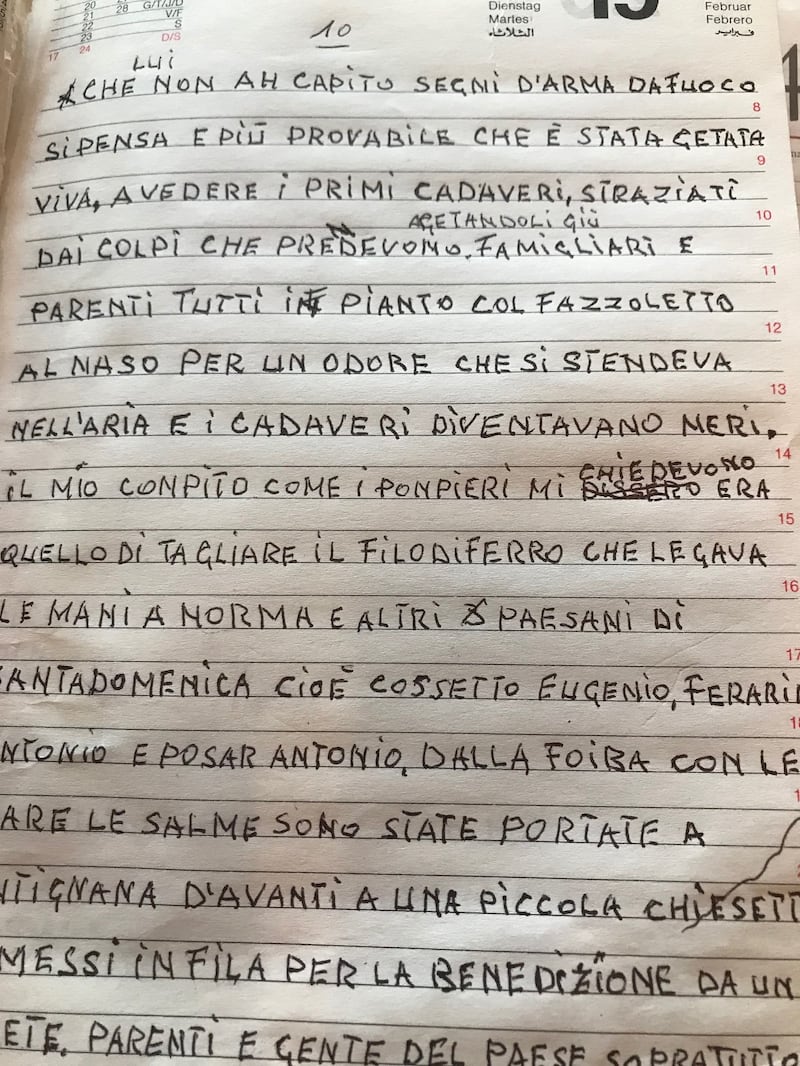 20 28 G/T/J/D
21 V/F
22 S
23 D/S
17 24
Dienstag
Martes
الثلاثاء
Februar
Febrero
فبراير
10
LUI
CHE NON AH CAPITO SEGNI D'ARMA DAFUOCO
8
SI PENSA E PIÙ PROVABILE CHE È STATA GETATA
9
VIVA, AVEDERE I PRIMI CADAVERI, STRAZIATI
10
AGETANDOLI GIÙ
DAI COLPI CHE PRENDEVONO, FAMIGLIARI E
11
PARENTI TUTTI IN PIANTO COL FAZZOLETTO
12
AL NASO PER UN ODORE CHE SI STENDEVA
13
NELL'ARIA E I CADAVERI DIVENTAVANO NERI,
14
CHIEDEVONO
IL MIO CONPITO COME I PONPIERI MI ERA
15
QUELLO DI TAGLIARE IL FILO DIFERRO CHE LEGAVA
16
LE MANI A NORMA E ALTRI PAESANI DI
17
SANTADOMENICA CIOÈ COSSETTO EUGENIO, FERARIN
18
NTONIO E POSAR ANTONIO, DALLA FOIBA CON LE
ARE LE SALME SONO STATE PORTATE A
NTIGNANA D'AVANTI A UNA PICCOLA CHIESETT
MESSI IN FILA PER LA BENEDIZIONE DA UN
ETE, PARENTI E GENTE DEL PAESE SOPRATUTTO